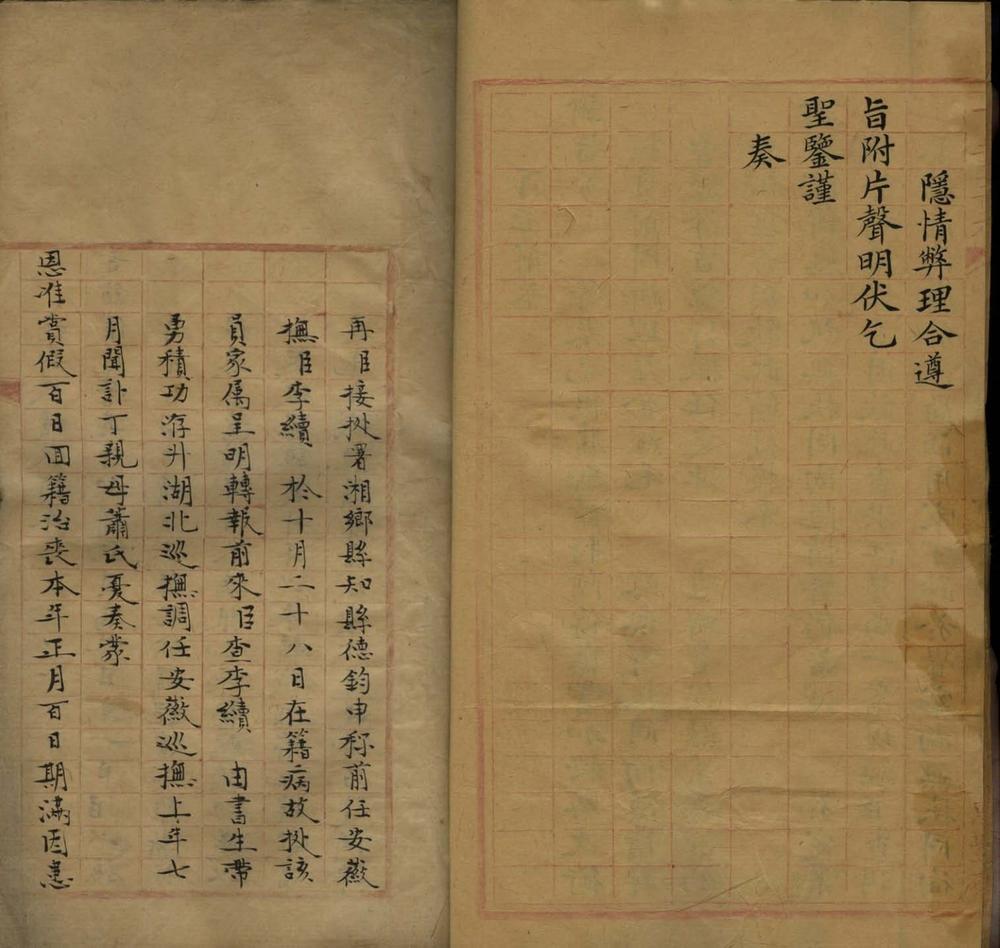 隱情弊理合遵
旨附片聲明伏乞
聖鑒謹
奏
再臣接據署湘鄉縣知縣德鈞申称前任安徽
撫臣李續 於十月二十八日在籍病故據該
員家属呈明轉報前來臣查李續 由書生帶
勇積功洊升湖北巡撫調任安徽巡撫上年七
月聞訃丁親母蕭氏憂奏蒙
恩准賞假百日回籍治喪本年正月百日期滿因患